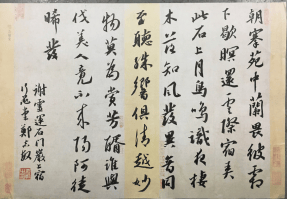 朝搴苑中蘭畏彼霜
下歇暝還雲際宿弄
此石上月鳥鳴識夜棲
木落知風發異音同
至聽殊響俱清越妙
物莫為賞芳醑誰與
伐美人竟不來陽阿徒
晞髮
謝靈運石門巖上宿